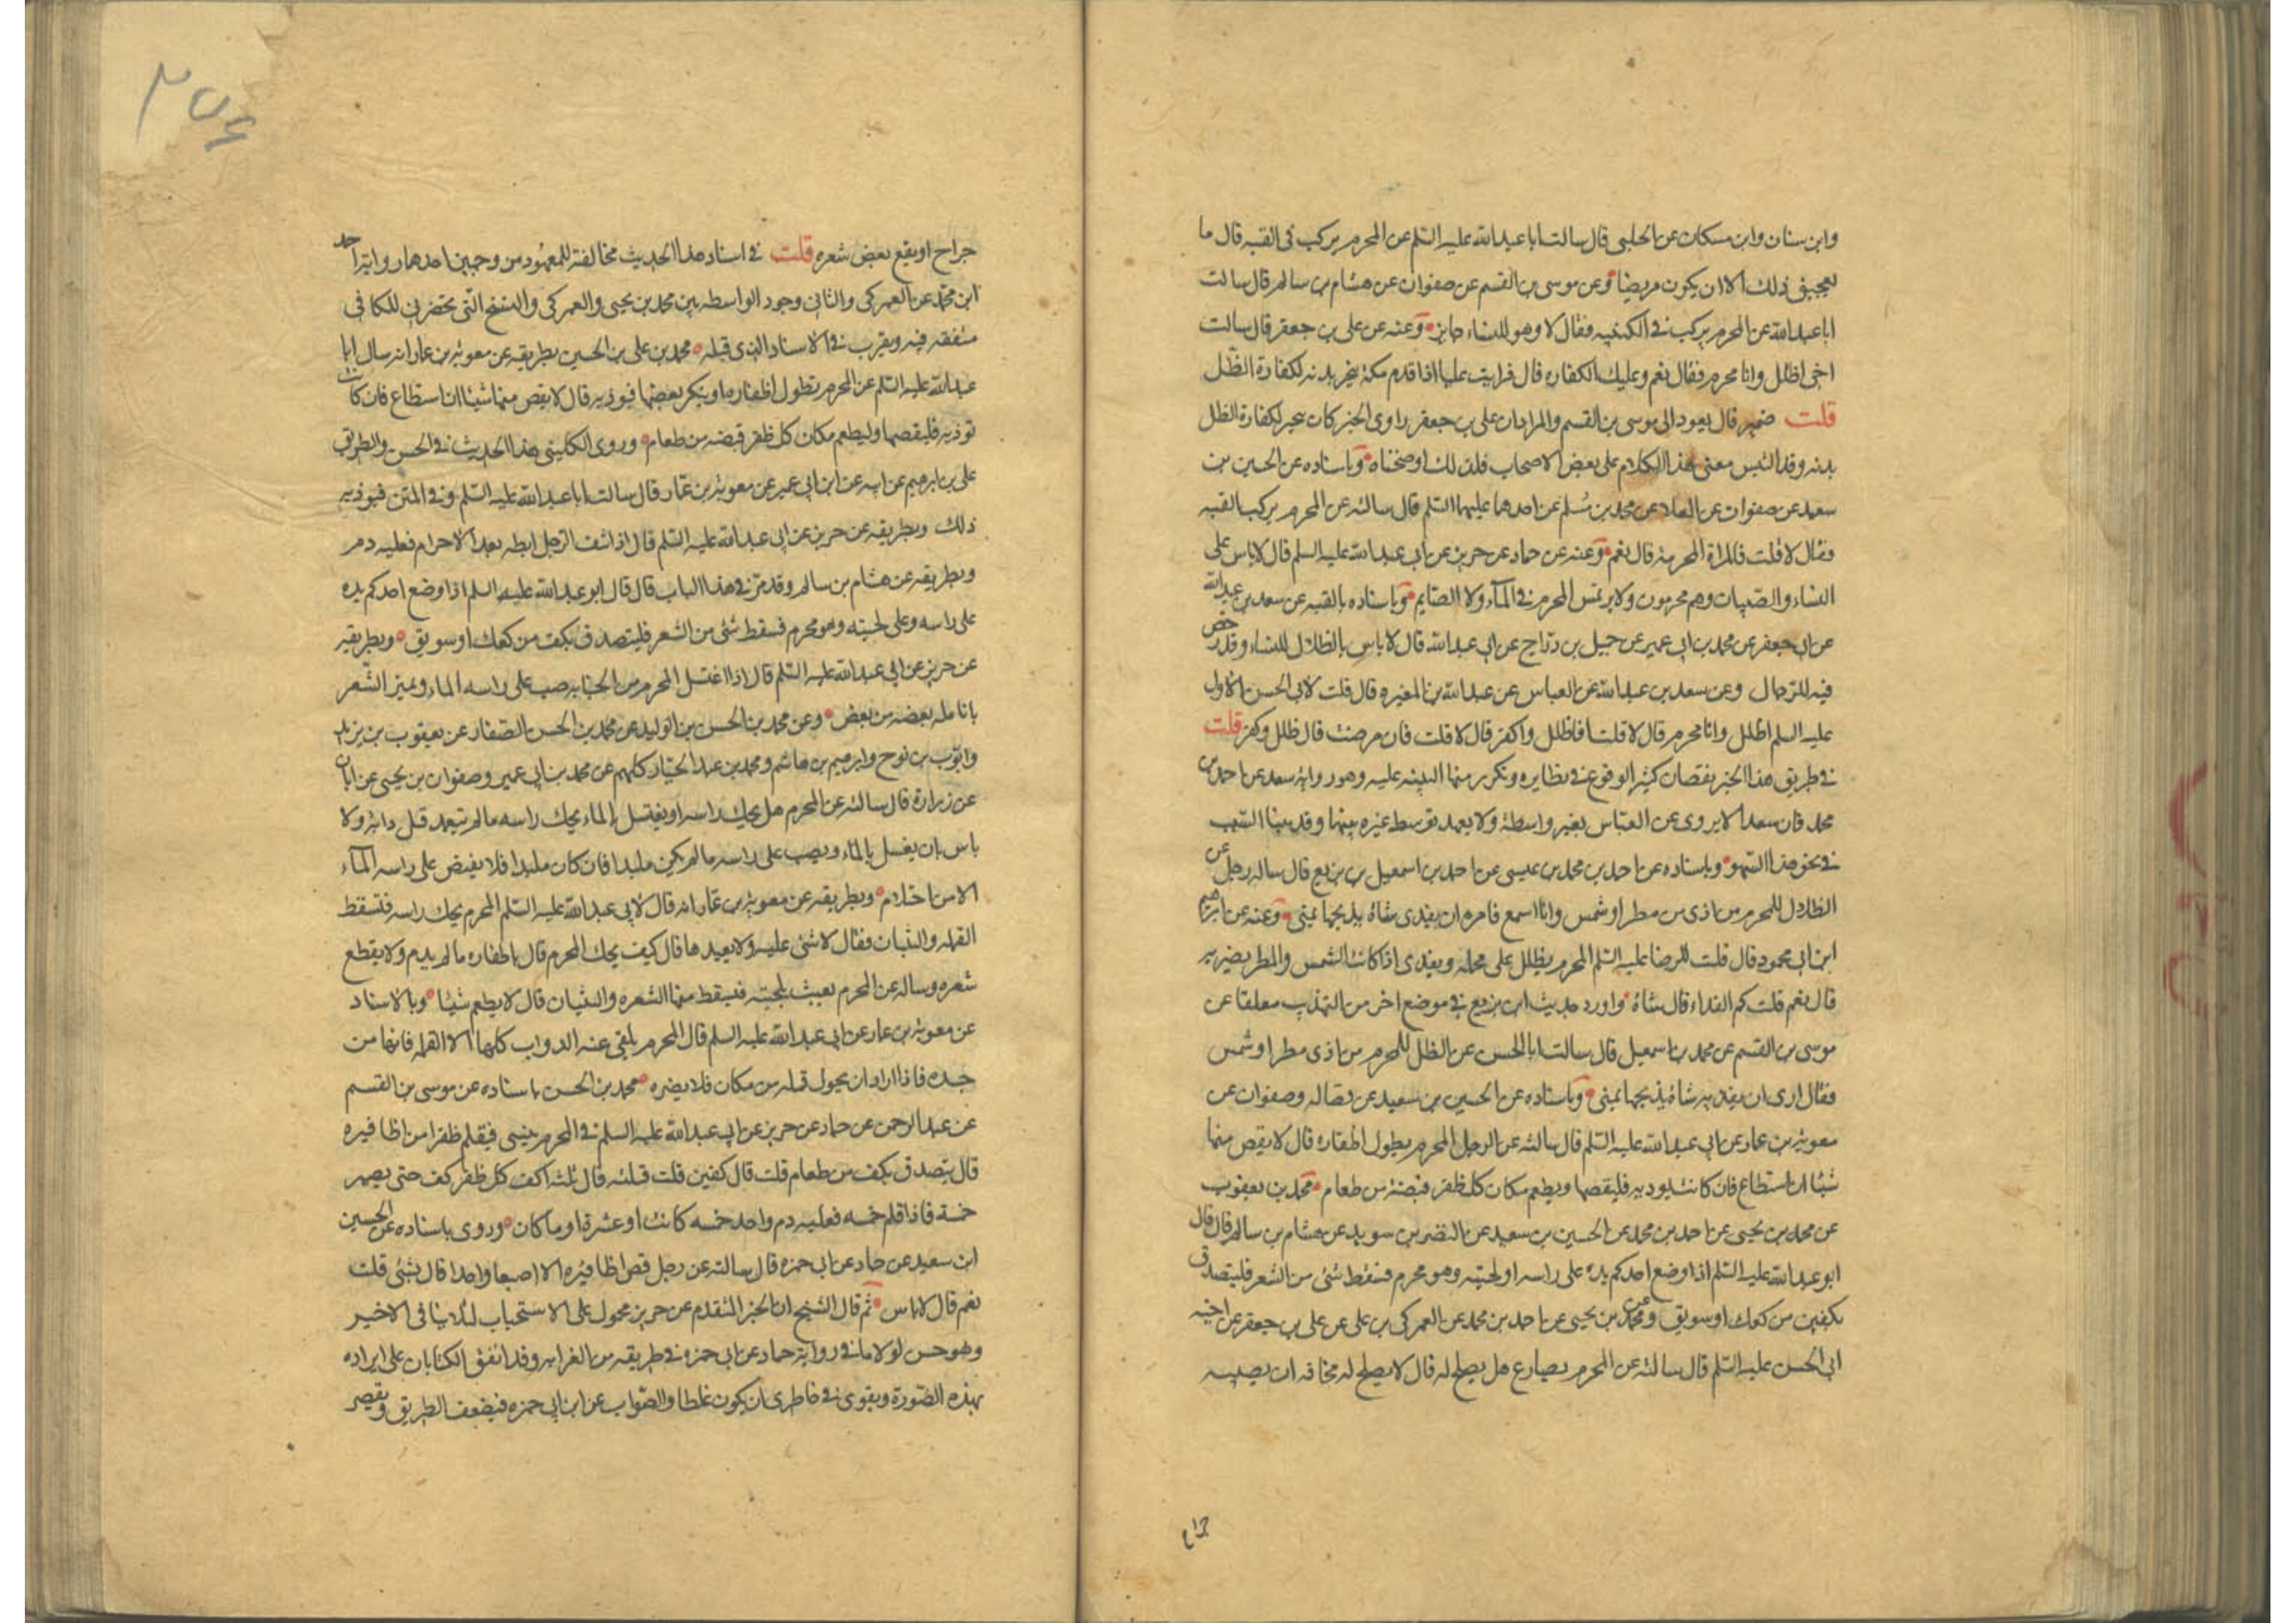 وابن سنان وابن مسكان عن الحلبى قال سالت ابا عبدالله عليه السلم عن المحرم يركب فى القبه قال ما
يعجبنى ذلك الا ان يكون مريضا وعن موسى بن القسم عن صفوان عن هشام بن سالم قال سالت
ابا عبدالله عن المحرم يركب فى الكنيسه فقال لا وهو للنساء جايز وعنه عن على بن جعفر قال سالت
اخى اظلل وانا محرم فقال نعم وعليك الكفاره قال فرايت عليا اذا قدم مكة ينحر بدنه لكفارة الظل
قلت ضمير قال يعود الى موسى بن القسم والمراد ان على بن جعفر راوى الخبر كان ينحر لكفارة الظل
بدنه وقد التبس معنى هذا الكلام على بعض الاصحاب فلذلك اوضحناه وباسناده عن الحسين بن
سعيد عن صفوان عن العلا عن محمد بن مسلم عن احدهما عليهما السلم قال سالته عن المحرم يركب القبه
فقال لا قلت فالمراة المحرمة قال نعم وعنه عن حماد عن حريز عن ابى عبدالله عليه السلم قال لا باس على
النساء والصبيان وهم محرمون ولا يرتمس المحرم فى الماء ولا الصايم وباسناده بالقبه عن سعد بن عبدالله
عن ابى جعفر عن محمد بن ابى عمير عن جميل بن دراج عن ابى عبدالله قال لا باس بالظلال للنساء وقد رخص
فيه للرجال وعن سعد بن عبدالله عن العباس عن عبدالله بن المغيره قال قلت لابى الحسن الاول
عليه السلم اظلل وانا محرم قال لا قلت افاظلل واكفر قال لا قلت فان مرضت قال ظلل وكفر قلت
فى طريق هذا الخبر نقصان كثير الوقوع فى نظايره وتكرر منا التنبيه عليه وهو رواية سعد عن احمد بن
محمد فان سعدا لا يروى عن العباس بغير واسطة ولا يعهد توسط غيره بينهما وقد بينا السبب
فى نحو هذا السهو وباسناده عن احمد بن محمد بن عيسى عن احمد بن اسمعيل بن بزيع قال ساله رجل عن
الظلال للمحرم من اذى من مطر او شمس وانا اسمع فامره ان يفدى بشاة يذبحها بمنى وعنه عن ابراهيم
ابن ابى محمود قال قلت للرضا عليه السلم المحرم يظلل على محمله ويفدى اذا كانت الشمس والمطر يضر به
قال نعم قلت كم الفداء قال شاة واورد حديث ابن بزيع فى موضع اخر من التهذيب معلقا عن
موسى بن القسم عن محمد بن اسمعيل قال سالت ابا الحسن عن الظل للمحرم من اذى مطر او شمس
فقال ارى ان يفديه بشاة يذبحها بمنى وباسناده عن الحسين بن سعيد عن فضاله وصفوان عن
معوية بن عمار عن ابى عبدالله عليه السلم قال سالته عن الرجل المحرم يطول اظفاره قال لا يقص منها
شيئا ان استطاع فان كانت تؤذيه فليقصها ويطعم مكان كل ظفر قبضة من طعام محمد بن يعقوب
عن محمد بن يحيى عن احمد بن محمد عن الحسين بن سعيد عن النضر بن سويد عن هشام بن سالم قال قال
ابو عبدالله عليه السلم اذا وضع احدكم يده على راسه او لحيته وهو محرم فسقط شئ من الشعر فليتصدق
بكفين من كعك او سويق وعن محمد بن يحيى عن احمد بن محمد عن العمركى بن على عن على بن جعفر عن اخيه
ابى الحسن عليه السلم قال سالته عن المحرم يصارع هل يصلح له قال لا يصلح له مخافه ان يصيبه
جراح
٢٥٤
جراح او يقع بعض شعره قلت فى اسناد هذا الحديث مخالفة للمعهود من وجهين احدهما رواية احمد
ابن محمد عن العمركى والثانى وجود الواسطه بين محمد بن يحيى والعمركى والنسخ التى تحضرنى للكافى
متفقه فيه ويقرب فى الاسناد الذى قبله محمد بن على بن الحسين بطريقه عن معوية بن عمار انه سال ابا
عبدالله عليه السلم عن المحرم تطول اظفاره او ينكسر بعضها فيوذيه قال لا يقص منها شيئا ان استطاع فان كانت
توذيه فليقصها وليطعم مكان كل ظفر قبضه من طعام وروى الكلينى هذا الحديث فى الحسن والطريق
على بن ابرهيم عن ابيه عن ابن ابى عمير عن معوية بن عمار قال سالت ابا عبدالله عليه السلم وفى المتن فيوذيه
ذلك وبطريقه عن حريز عن ابى عبدالله عليه السلم قال اذا نتف الرجل ابطه بعد الاحرام فعليه دم
وبطريقه عن هشام بن سالم وقد مر فى هذا الباب قال قال ابو عبدالله عليه السلم اذا وضع احدكم يده
على راسه وعلى لحيته وهو محرم فسقط شئ من الشعر فليتصدق بكف من كعك او سويق وبطريقه
عن حريز عن ابى عبدالله عليه السلم قال اذا اغتسل المحرم من الجنابه صب على راسه الماء ويميز الشعر
بانامله بعضه من بعض وعن محمد بن الحسن بن الوليد عن محمد بن الحسن الصفار عن يعقوب بن يزيد
وايوب بن نوح وابرهيم بن هاشم ومحمد بن عبد الجبار كلهم عن محمد بن ابى عمير وصفوان بن يحيى عن ابان
عن زرارة قال سالته عن المحرم هل يحك راسه او يغتسل بالماء قال يحك راسه ما لم يتعمد قتل دابة ولا
باس بان يغتسل بالماء ويصب على راسه ما لم يكن ملبدا فان كان ملبدا فلا يفيض على راسه الماء
الا من احتلام وبطريقه عن معوية بن عمار انه قال لابى عبدالله عليه السلم المحرم يحك راسه فتسقط
القمله والثنتان فقال لا شئ عليه ولا يعيدها قال كيف يحك المحرم قال باظفاره ما لم يدم ولا يقطع
شعره وساله عن المحرم يعبث بلحيته فيسقط منها الشعره والثنتان قال لا يطعم شيئا وبالاسناد
عن معوية بن عمار عن ابى عبدالله عليه السلم قال المحرم يلقى عنه الدواب كلها الا القمله فانها من
جسده فاذا اراد ان يحول قمله من مكان فلا يضره محمد بن الحسن باسناده عن موسى بن القسم
عن عبد الرحمن عن حماد عن حريز عن ابى عبدالله عليه السلم فى المحرم ينسى فيقلم ظفرا من اظافيره
قال يتصدق بكف من طعام قلت قال كفين قلت فثلثه قال ثلثه اكف كل ظفر كف حتى يصير
خمسة فاذا قلم خمسه فعليه دم واحد خمسه كانت او عشرة او ما كان وروى باسناده عن الحسين
ابن سعيد عن حماد عن ابى حمزه قال سالته عن رجل قص اظافيره الا اصبعا واحدا قال نسى قلت
نعم قال لا باس ثم قال الشيخ ان الخبر المتقدم عن حريز محمول على الاستحباب لئلا ينافى الاخير
وهو حسن لولا ما فى رواية حماد عن ابى حمزه فى طريقه من الغرابه وقد اتفق الكتابان على ايراده
بهذه الصورة ويقوى فى خاطرى ان يكون غلطا والصواب عن ابن ابى حمزه فيضعف الطريق ويقصر